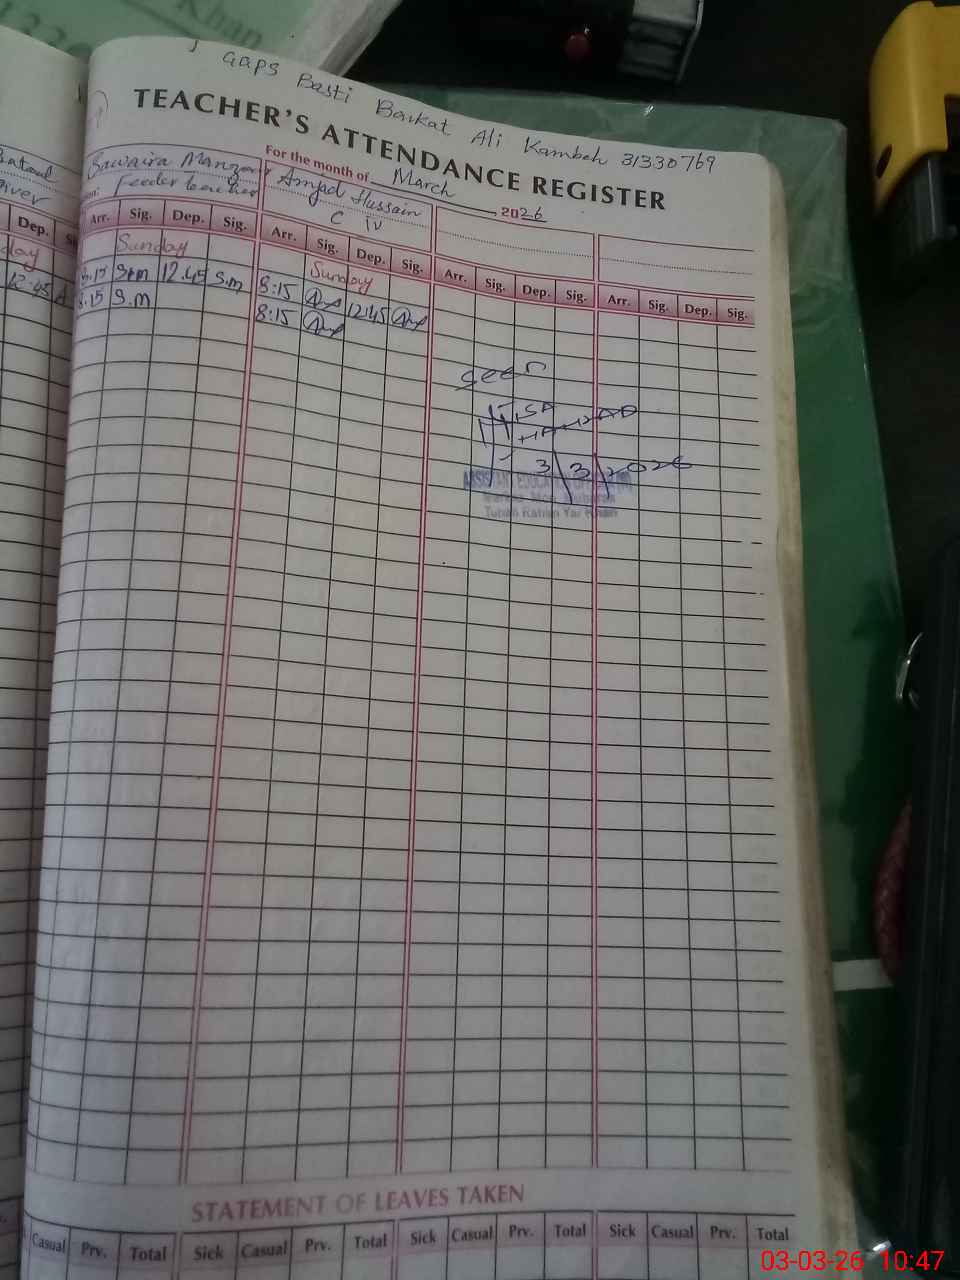 Khan
GGPS Basti Barkat Ali Kamboh 31330769
TEACHER'S ATTENDANCE REGISTER
For the month of March 2026
Sawaira Manzoor
Feeder teacher
Amjad Hussain
C iv
Arr. Sig. Dep. Sig. Arr. Sig. Dep. Sig. Arr. Sig. Dep. Sig. Arr. Sig. Dep. Sig.
Dep.
Sunday Sunday
8:15 S.m 12:45 S.m 8:15 12:45
12:45
8:15 S.m 8:15
Seen
3/3/2026
ASSISTANT EDUCATION
Tehsil Rahim Yar Khan
STATEMENT OF LEAVES TAKEN
Casual Prv. Total Sick Casual Prv. Total Sick Casual Prv. Total Sick Casual Prv. Total
03-03-26 10:47